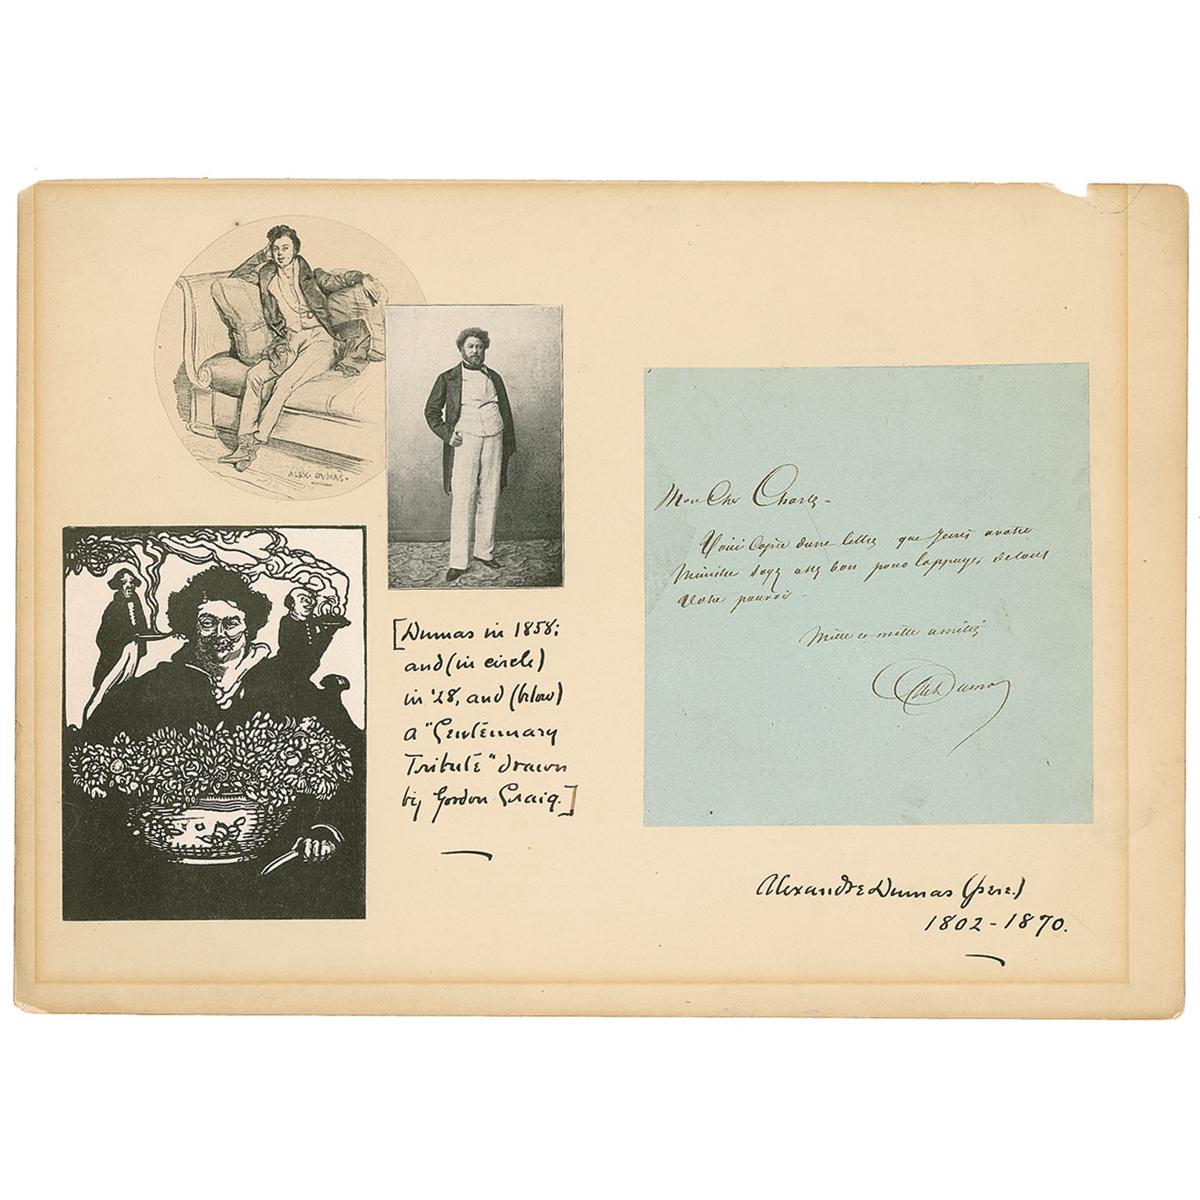 ALEX. DUMAS.
[Dumas in 1858;
and (in circle)
in '28, and (below)
a "Centennary
Tribute" drawn
by Gordon Craig.]
Mon Cher Charles –
Voici Copie dune lettre que j'ecris a votre
Ministre soyez assez bon pour lappuyer de tout
Votre pouvoir –
Mille et mille amitiés
Alex Dumas
Alexandre Dumas (père.)
1802 - 1870.